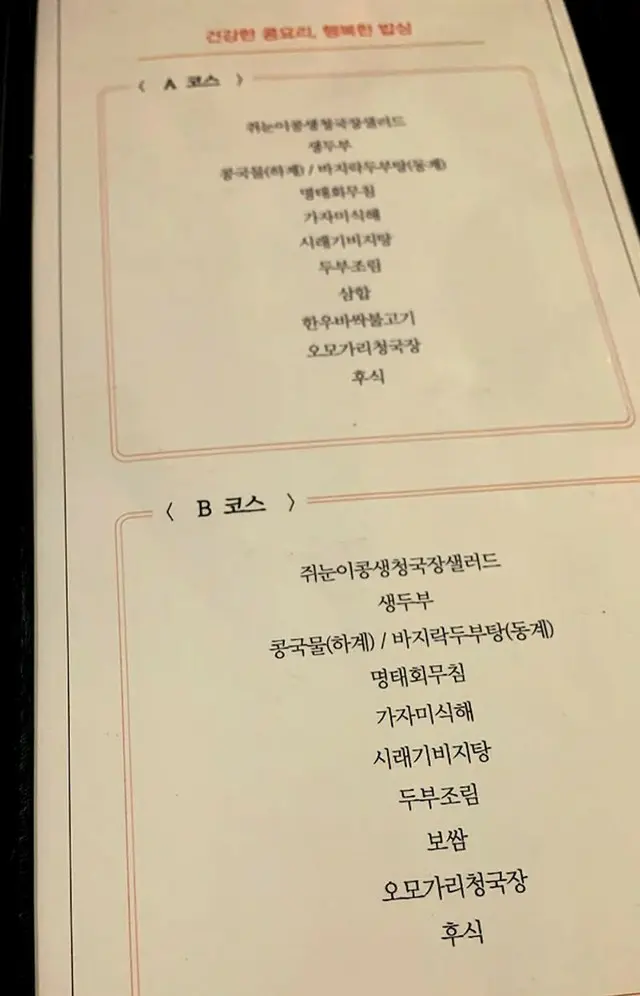 건강한 콩요리, 행복한 밥상
〈 A 코스 〉
쥐눈이콩생청국장샐러드
생두부
콩국물(하계) / 바지락두부탕(동계)
명태회무침
가자미식해
시래기비지탕
두부조림
삼합
한우바싹불고기
오모가리청국장
후식
〈 B 코스 〉
쥐눈이콩생청국장샐러드
생두부
콩국물(하계) / 바지락두부탕(동계)
명태회무침
가자미식해
시래기비지탕
두부조림
보쌈
오모가리청국장
후식